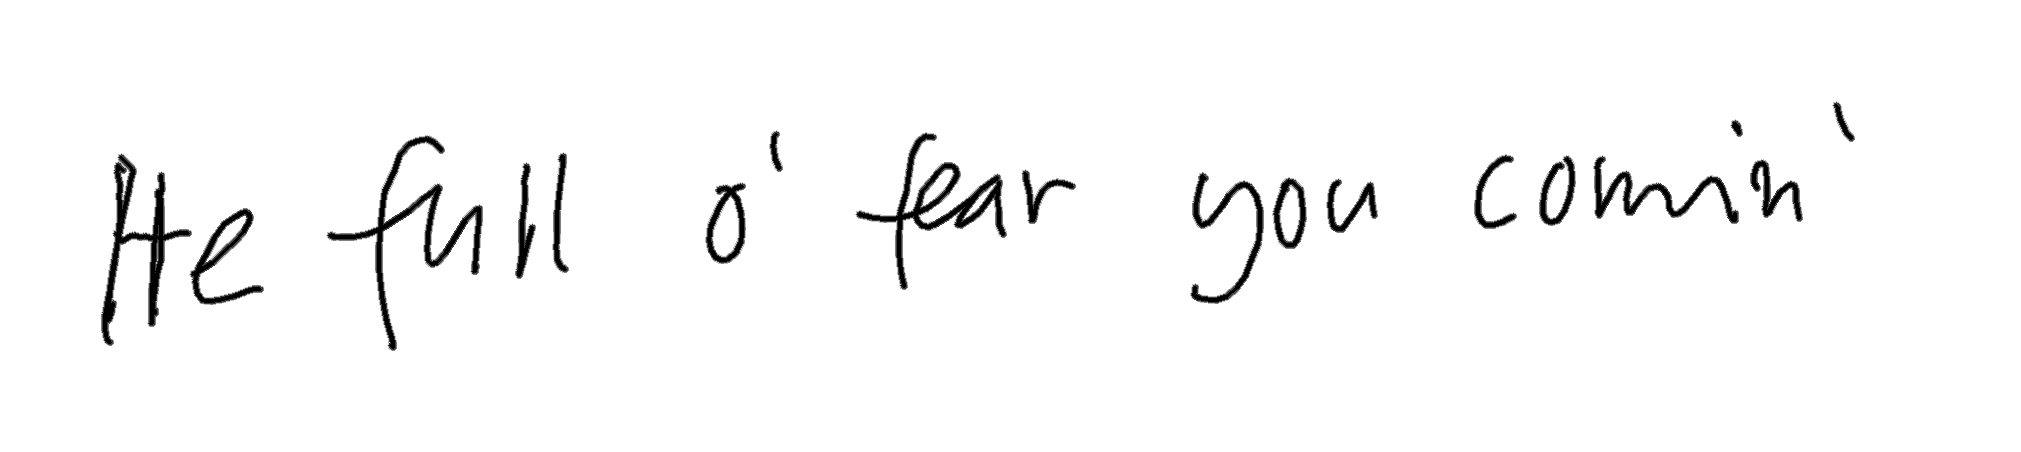 He full o' fear you comin'